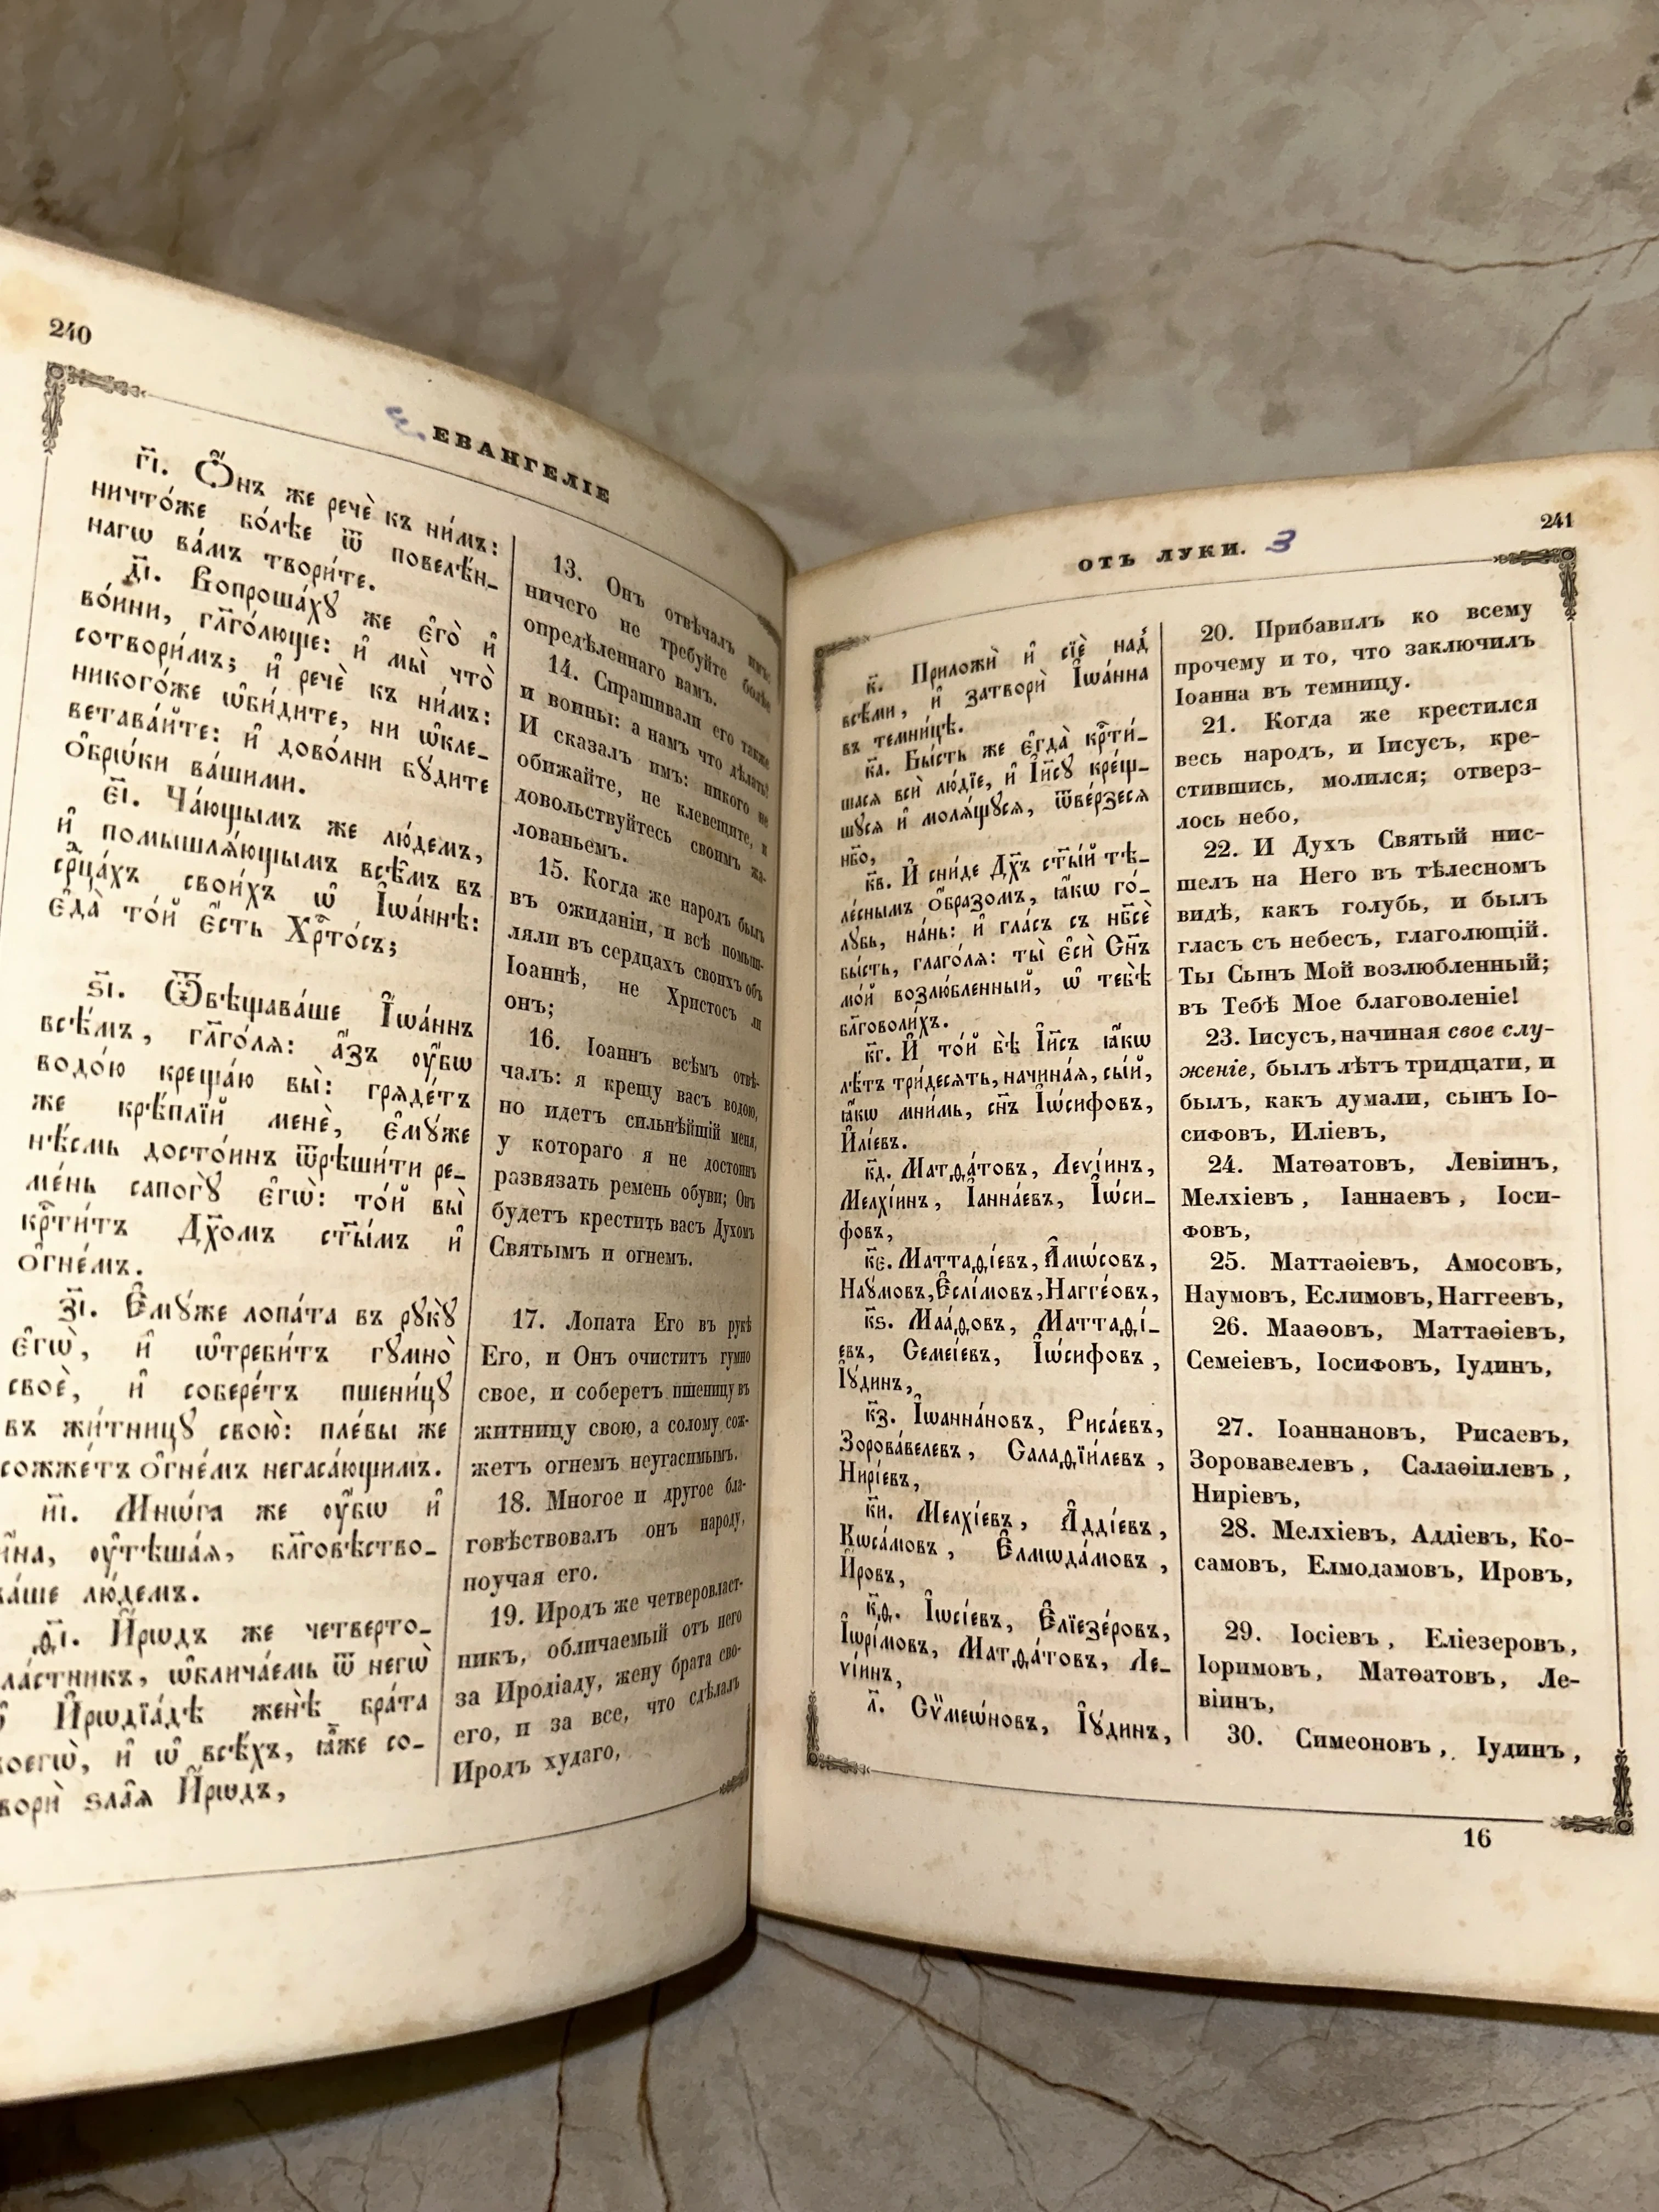 240
ЕВАНГЕЛІЕ
г҃і. Ѻ҆́нъ же речѐ къ ни̑мъ:
ничто́же бо́лѣе ѿ повелѣ́н-
нагѡ ва́мъ твори́те.
д҃і. Вопроша́хꙋ же є҆го̀ и҆
во́ини, гл҃го́люще: и҆ мы̀ что̀
сотвори́мъ; и҆ речѐ къ ни̑мъ:
никого́же ѡ҆би́дите, ни ѡ҆кле-
вета́вайте: и҆ дово́лни бꙋ́дите
ѻ҆брѡ́ки ва́шими.
є҃і. Ча́ющымъ же лю́демъ,
и҆ помышлѧ́ющымъ всѣ̑мъ въ
срⷣца́хъ свои́хъ ѡ҆ І҆ѡа́ннѣ:
є҆да̀ то́й є҆́сть Хрⷭ҇то́съ;
ѕ҃і. Ѿвѣщава́ше І҆ѡа́ннъ
всѣ̑мъ, гл҃го́лѧ: а҆́зъ ᲂу҆́бѡ
водо́ю креща́ю вы̀: грѧде́тъ
же крѣ́плїй менє̀, є҆мꙋ́же
нѣ́смь досто́инъ ѿрѣши́ти ре-
ме́нь сапогꙋ̀ є҆гѡ̀: то́й вы̀
крⷭ҇ти́тъ Дх҃омъ ст҃ы́мъ и҆
ѻ҆гне́мъ.
з҃і. Є҆мꙋ́же лопа́та въ рꙋкꙋ̀
є҆гѡ̀, и҆ ѡ҆треби́тъ гꙋмно̀
своѐ, и҆ собере́тъ пшени́цꙋ
въ жи́тницꙋ свою̀: пле́вы же
сожже́тъ ѻ҆гне́мъ негаса́ющимъ.
и҃і. Мнѡ́га же ᲂу҆́бѡ и҆
и҆́на, ᲂу҆тѣша́ѧ, бл҃говѣство-
ва́ше лю́демъ.
ѳ҃і. И҆́рѡдъ же четверто-
вла́стникъ, ѡ҆блича́емь ѿ негѡ̀
ѡ҆ И҆рѡдїа́дѣ женѣ̀ бра́та
своегѡ̀, и҆ ѡ҆ всѣ́хъ, ꙗ҆̀же со-
творѝ ѕла̑ѧ И҆́рѡдъ,
13. Онъ отвѣчалъ имъ:
ничего не требуйте болѣе
опредѣленнаго вамъ.
14. Спрашивали его также
и воины: а намъ что дѣлать?
И сказалъ имъ: никого не
обижайте, не клевещите, и
довольствуйтесь своимъ жа-
лованьемъ.
15. Когда же народъ былъ
въ ожиданіи, и всѣ помыш-
ляли въ сердцахъ своихъ объ
Іоаннѣ, не Христосъ ли
онъ;
16. Іоаннъ всѣмъ отвѣ-
чалъ: я крещу васъ водою,
но идетъ сильнѣйшій меня,
у котораго я не достоинъ
развязать ремень обуви; Онъ
будетъ крестить васъ Духомъ
Святымъ и огнемъ.
17. Лопата Его въ рукѣ
Его, и Онъ очиститъ гумно
свое, и соберетъ пшеницу въ
житницу свою, а солому сож-
жетъ огнемъ неугасимымъ.
18. Многое и другое бла-
говѣствовалъ онъ народу,
поучая его.
19. Иродъ же четверовласт-
никъ, обличаемый отъ него
за Иродіаду, жену брата сво-
его, и за все, что сдѣлалъ
Иродъ худаго,
241
ОТЪ ЛУКИ. 3
к҃. Приложѝ и҆ сїѐ над̾
всѣ́ми, и҆ затворѝ І҆ѡа́нна
въ темни́цѣ.
к҃а. Бы́сть же є҆гда̀ крⷭ҇ти́-
шасѧ всѝ лю́дїе, и҆ І҆и҃сꙋ кре́щ-
шꙋсѧ и҆ молѧ́щꙋсѧ, ѿве́рзесѧ
нб҃о,
к҃в. И҆ сни́де Дх҃ъ ст҃ы́й тѣ-
ле́снымъ ѻ҆́бразомъ, ꙗ҆́кѡ го́-
лꙋбь, на́нь: и҆ гла́съ съ нб҃сѐ
бы́сть, глаго́лѧ: ты̀ є҆сѝ Сн҃ъ
мо́й возлю́бленный, ѡ҆ тебѣ̀
бл҃говоли́хъ.
к҃г. И҆ то́й бѣ̀ І҆и҃съ ꙗ҆́кѡ
лѣ́тъ три́десѧть, начина́ѧ, сы́й,
ꙗ҆́кѡ мни́мь, сн҃ъ І҆ѡ́сифовъ,
И҆лі́евъ.
к҃д. Матѳа́товъ, Леѵі́инъ,
Мелхі́инъ, І҆анна́евъ, І҆ѡ́си-
фовъ,
к҃є. Маттаѳі́евъ, А҆мѡ́совъ,
Наꙋ́мовъ, Є҆слі́мовъ, Нагге́овъ,
к҃ѕ. Маа́ѳовъ, Маттаѳі́-
евъ, Семеі́евъ, І҆ѡ́сифовъ,
І҆ꙋ́динъ,
к҃з. І҆ѡанна́новъ, Риса́евъ,
Зорова́велевъ, Салаѳїи́левъ,
Нирі́евъ,
к҃и. Мелхі́евъ, А҆дді́евъ,
Кѡса́мовъ, Є҆лмѡда́мовъ,
И҆́ровъ,
к҃ѳ. І҆ѡсі́евъ, Є҆лїезе́ровъ,
І҆ѡрі́мовъ, Матѳа́товъ, Ле-
ѵі́инъ,
л҃. Сѷмеѡ́новъ, І҆ꙋ́динъ,
20. Прибавилъ ко всему
прочему и то, что заключилъ
Іоанна въ темницу.
21. Когда же крестился
весь народъ, и Іисусъ, кре-
стившись, молился; отверз-
лось небо,
22. И Духъ Святый нис-
шелъ на Него въ тѣлесномъ
видѣ, какъ голубь, и былъ
гласъ съ небесъ, глаголющій.
Ты Сынъ Мой возлюбленный;
въ Тебѣ Мое благоволеніе!
23. Іисусъ, начиная свое слу-
женіе, былъ лѣтъ тридцати, и
былъ, какъ думали, сынъ Іо-
сифовъ, Иліевъ,
24. Матѳатовъ, Левіинъ,
Мелхіевъ, Іаннаевъ, Іоси-
фовъ,
25. Маттаѳіевъ, Амосовъ,
Наумовъ, Еслимовъ, Наггеевъ,
26. Мааѳовъ, Маттаѳіевъ,
Семеіевъ, Іосифовъ, Іудинъ,
27. Іоаннановъ, Рисаевъ,
Зоровавелевъ, Салаѳіилевъ,
Ниріевъ,
28. Мелхіевъ, Аддіевъ, Ко-
самовъ, Елмодамовъ, Ировъ,
29. Іосіевъ, Еліезеровъ,
Іоримовъ, Матѳатовъ, Ле-
віинъ,
30. Симеоновъ, Іудинъ,
16